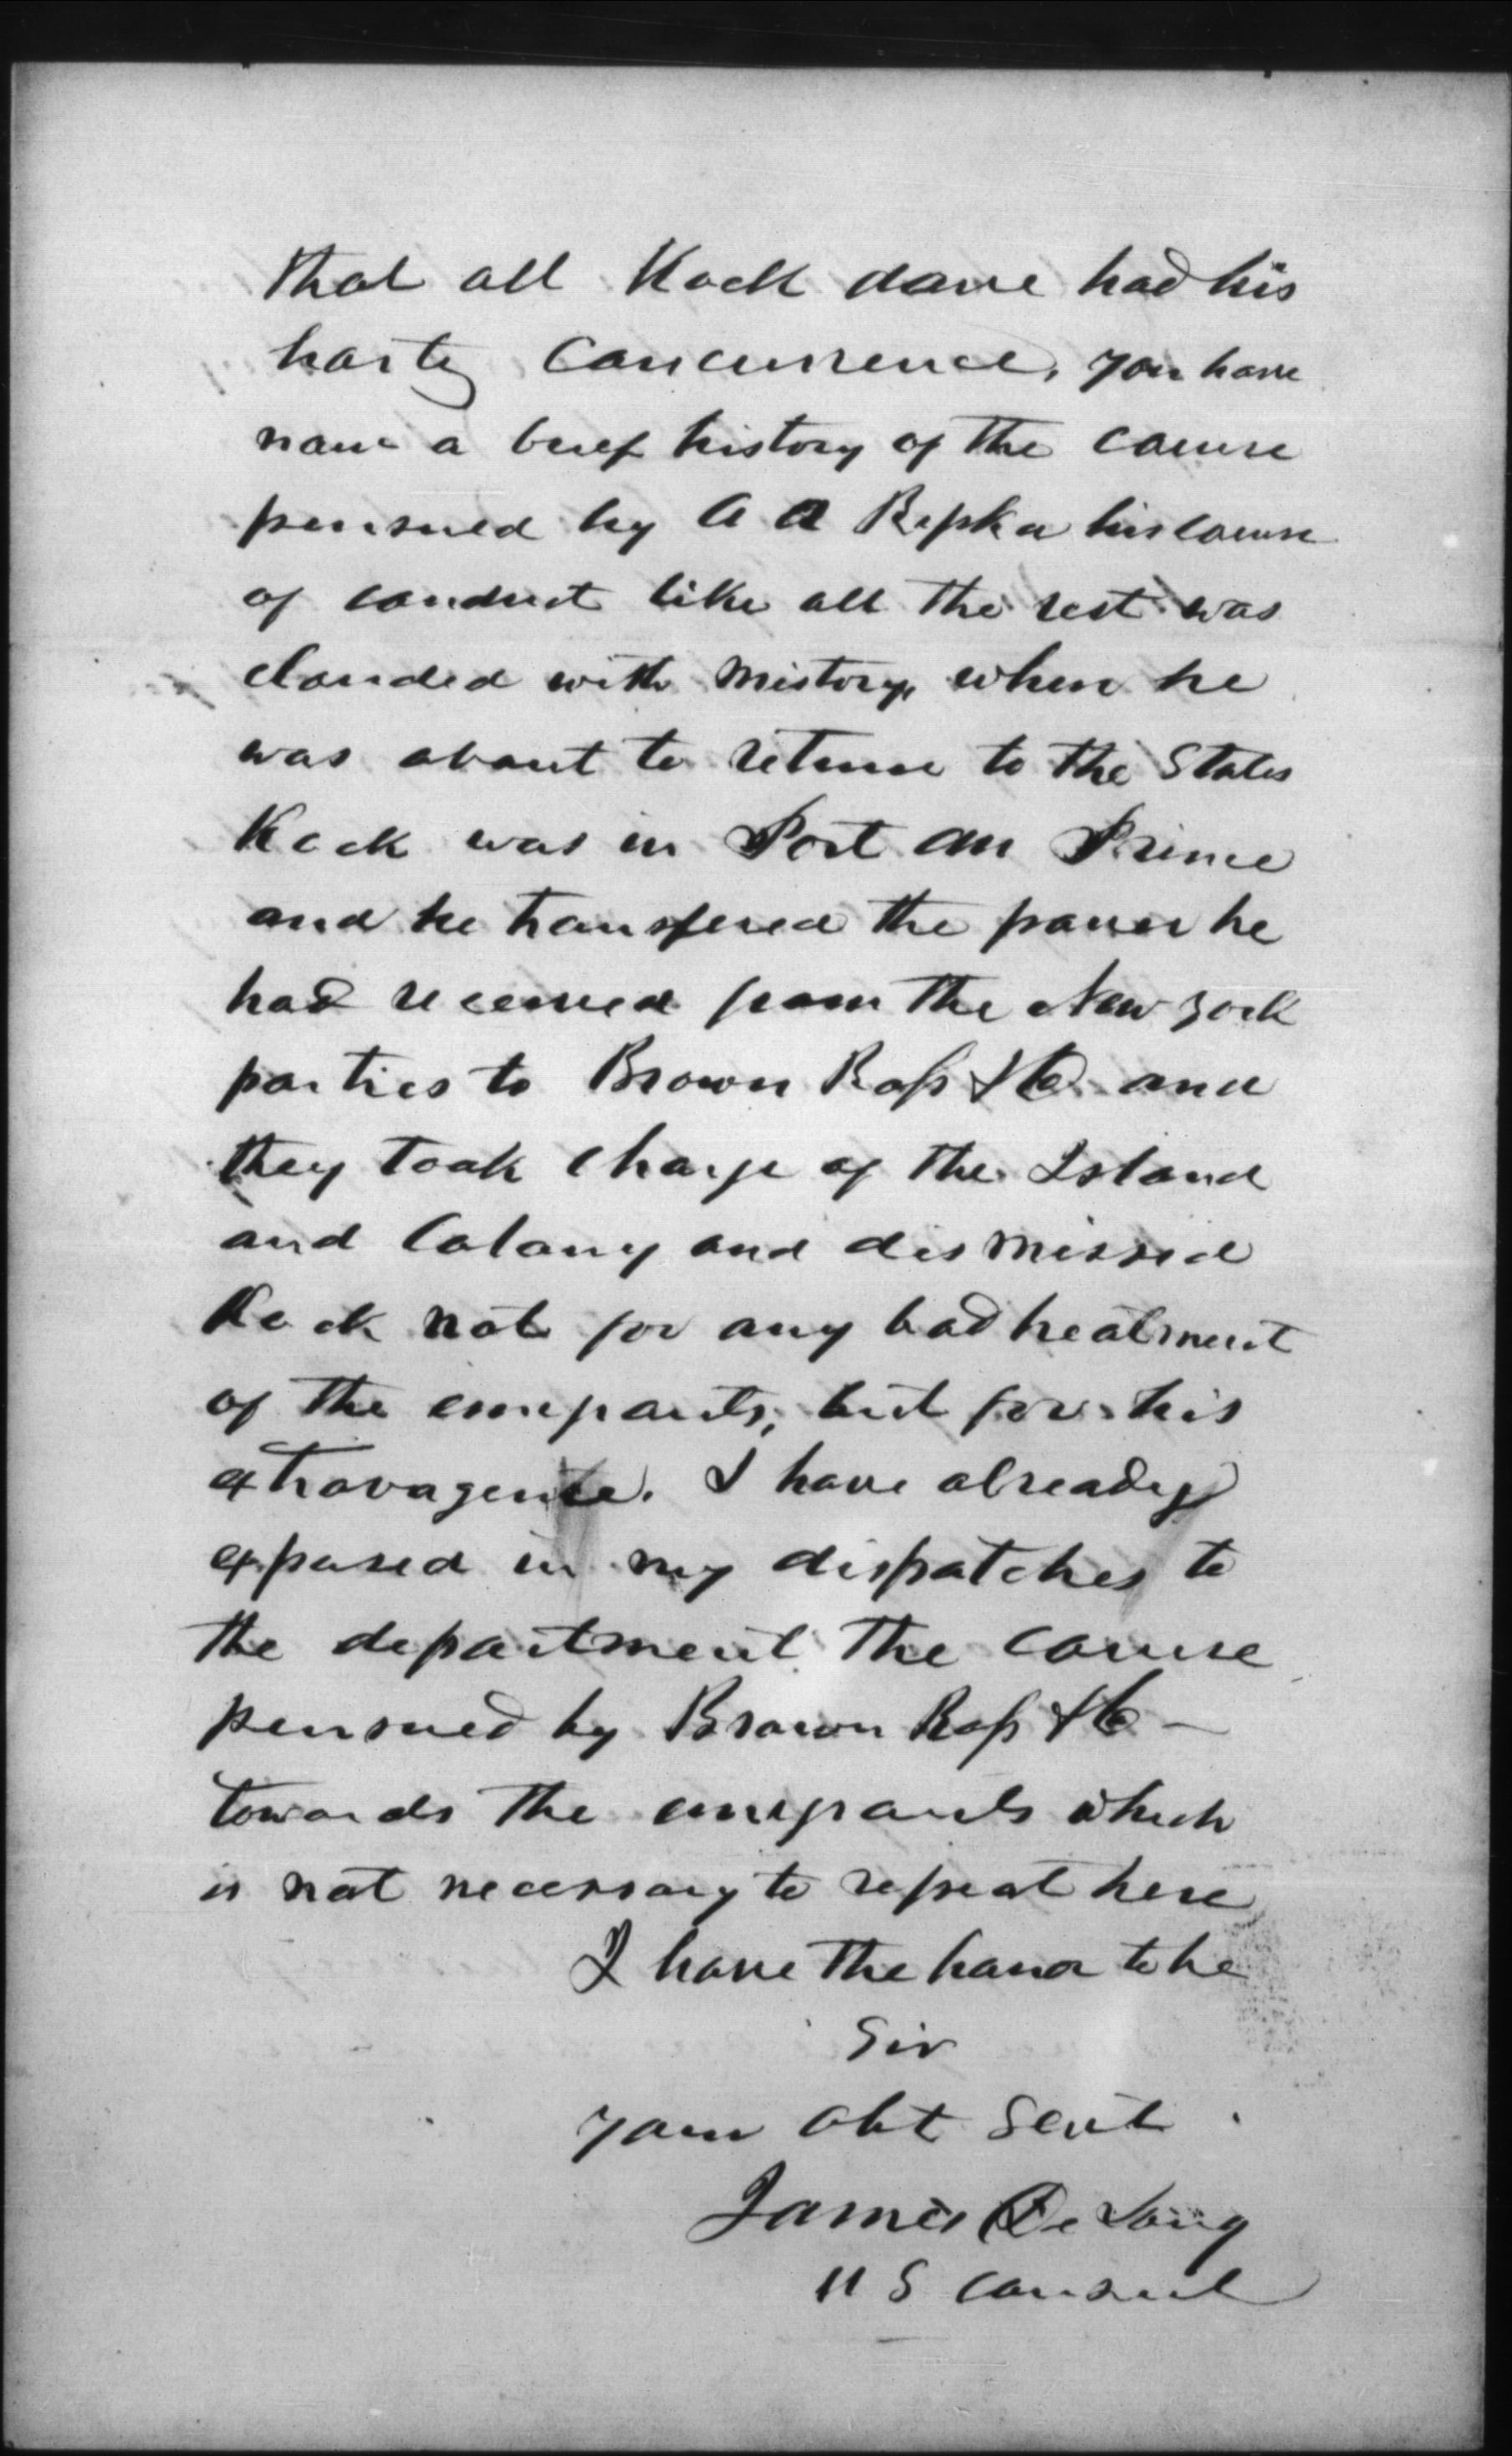 that all Kock done had his
harty concurrence, you have
now a brief history of the course
persued by A A Ripka his course
of conduct like all the rest was
clouded with mistory, when he
was about to return to the States
Kock was in Port au Prince
and he transfered the power he
had received from the New York
parties to Brown Ross & Co and
they took charge of the Island
and Colony and dismissed
Kock not for any bad treatment
of the emigrants, but for his
extravagence. I have already
exposed in my dispatches to
the department the course
persued by Brown Ross & Co -
towards the emigrants which
is not necessary to repeat here
I have the honor to be
Sir
your obt servt
James De Long
U S Consul